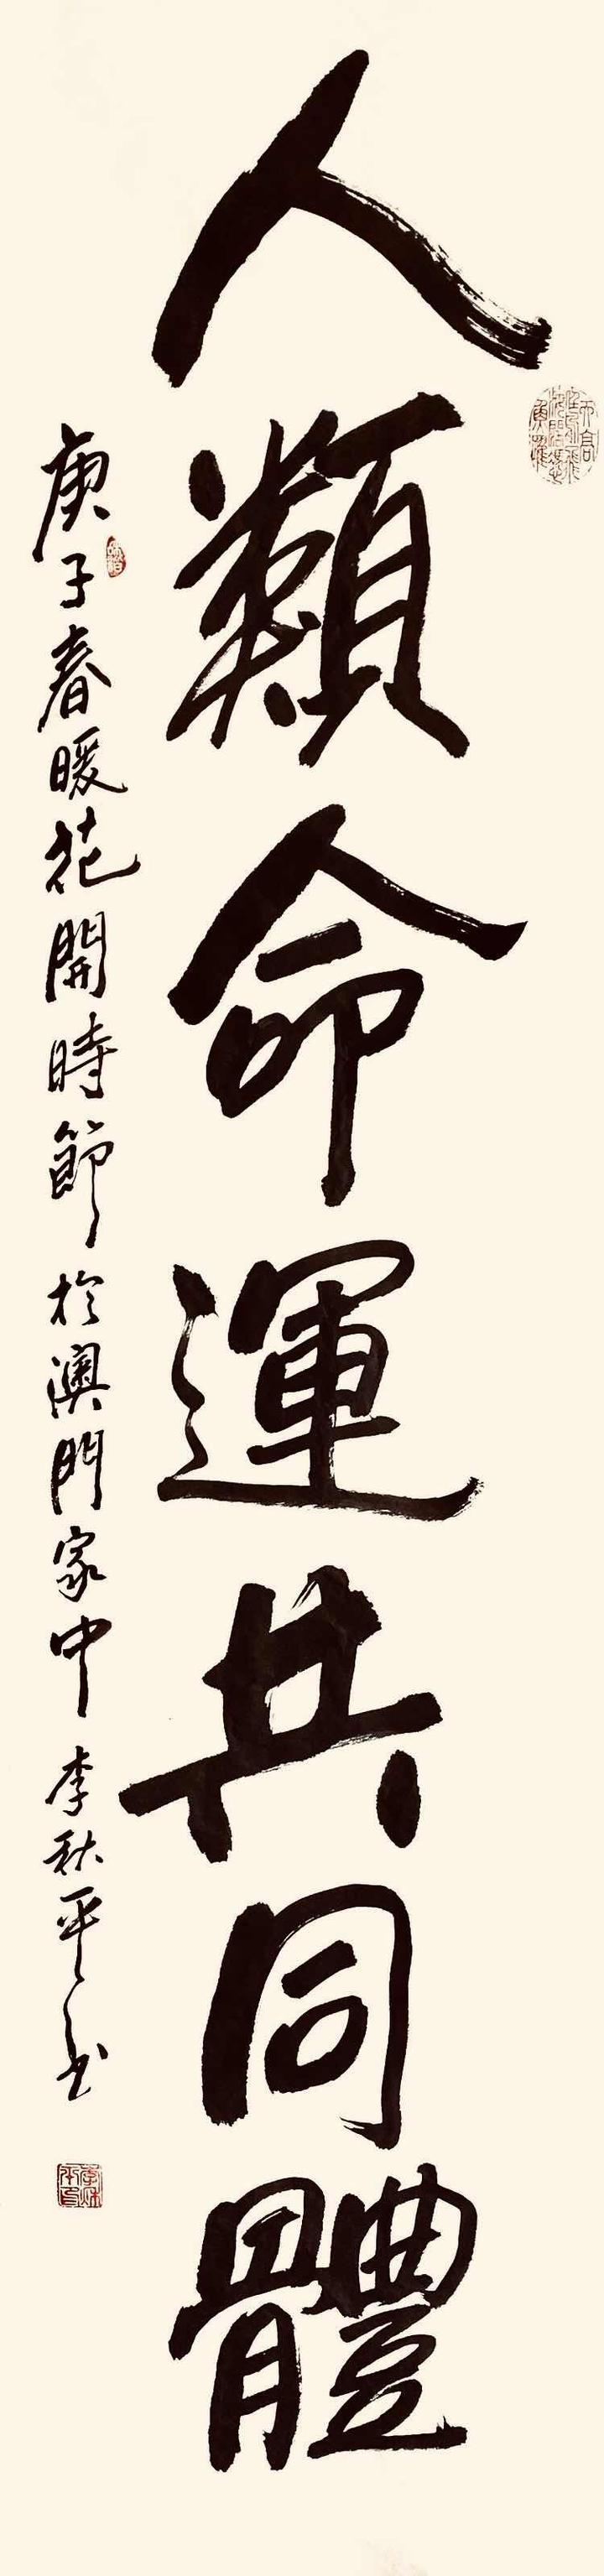 人類命運共同體
庚子春暖花開時節於澳門家中李秋平書